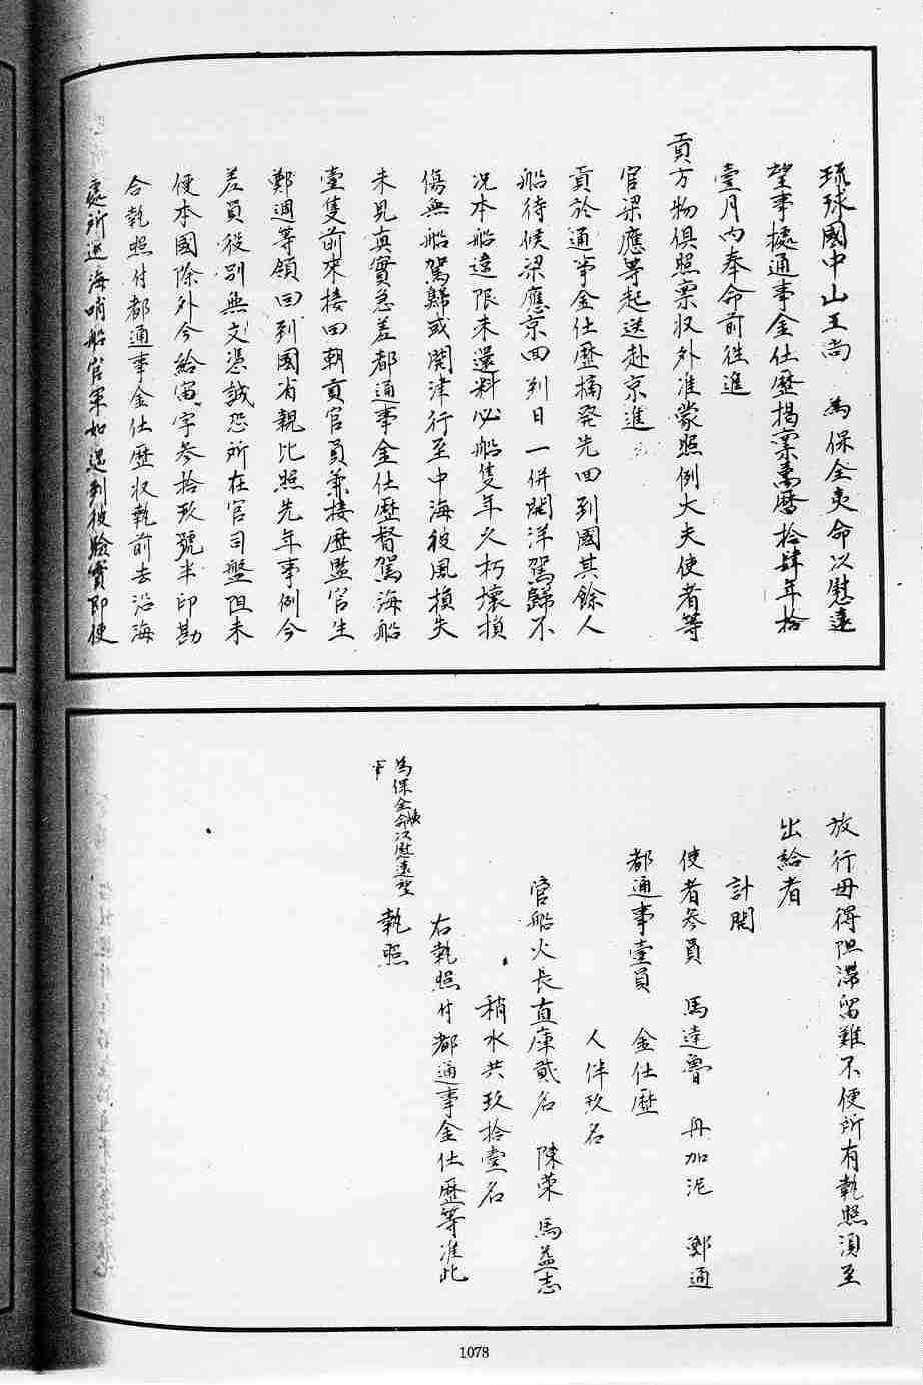 琉球國中山王尚　為保全夷命以慰遠
望事據通事金仕歷揭稟萬曆拾肆年拾
壹月內奉命前徃進
貢方物俱照稟収外准蒙照例大夫使者等
官梁應等起送赴京進
貢於通事金仕歷摘発先回到國其餘人
船待候梁應京回到日一併開洋駕歸不
況本船違限未還料必船隻年久朽壞損
傷無船駕歸或開津行至中海彼風損失
未見真實急差都通事金仕歷督駕海船
壹隻前來接回朝貢官員兼接歷監官生
鄭週等領回到國省親比照先年事例今
差員役別無文憑誠恐所在官司盤阻未
便本國除外今給寅字參拾玖號半印勘
合執照付都通事金仕歷収執前去沿海
處所巡海哨船官軍如遇到彼驗實即便
放行毋得阻滯留難不便所有執照須至
出給者
計開
使者參員　馬達魯　丹加泥　鄭通
都通事壹員　金仕歷
人伴玖名
官船火長直庫貳名　陳榮　馬益志
稍水共玖拾壹名
右執照付都通事金仕歷等准此
為保全夷命以慰遠望
事　執照
1078